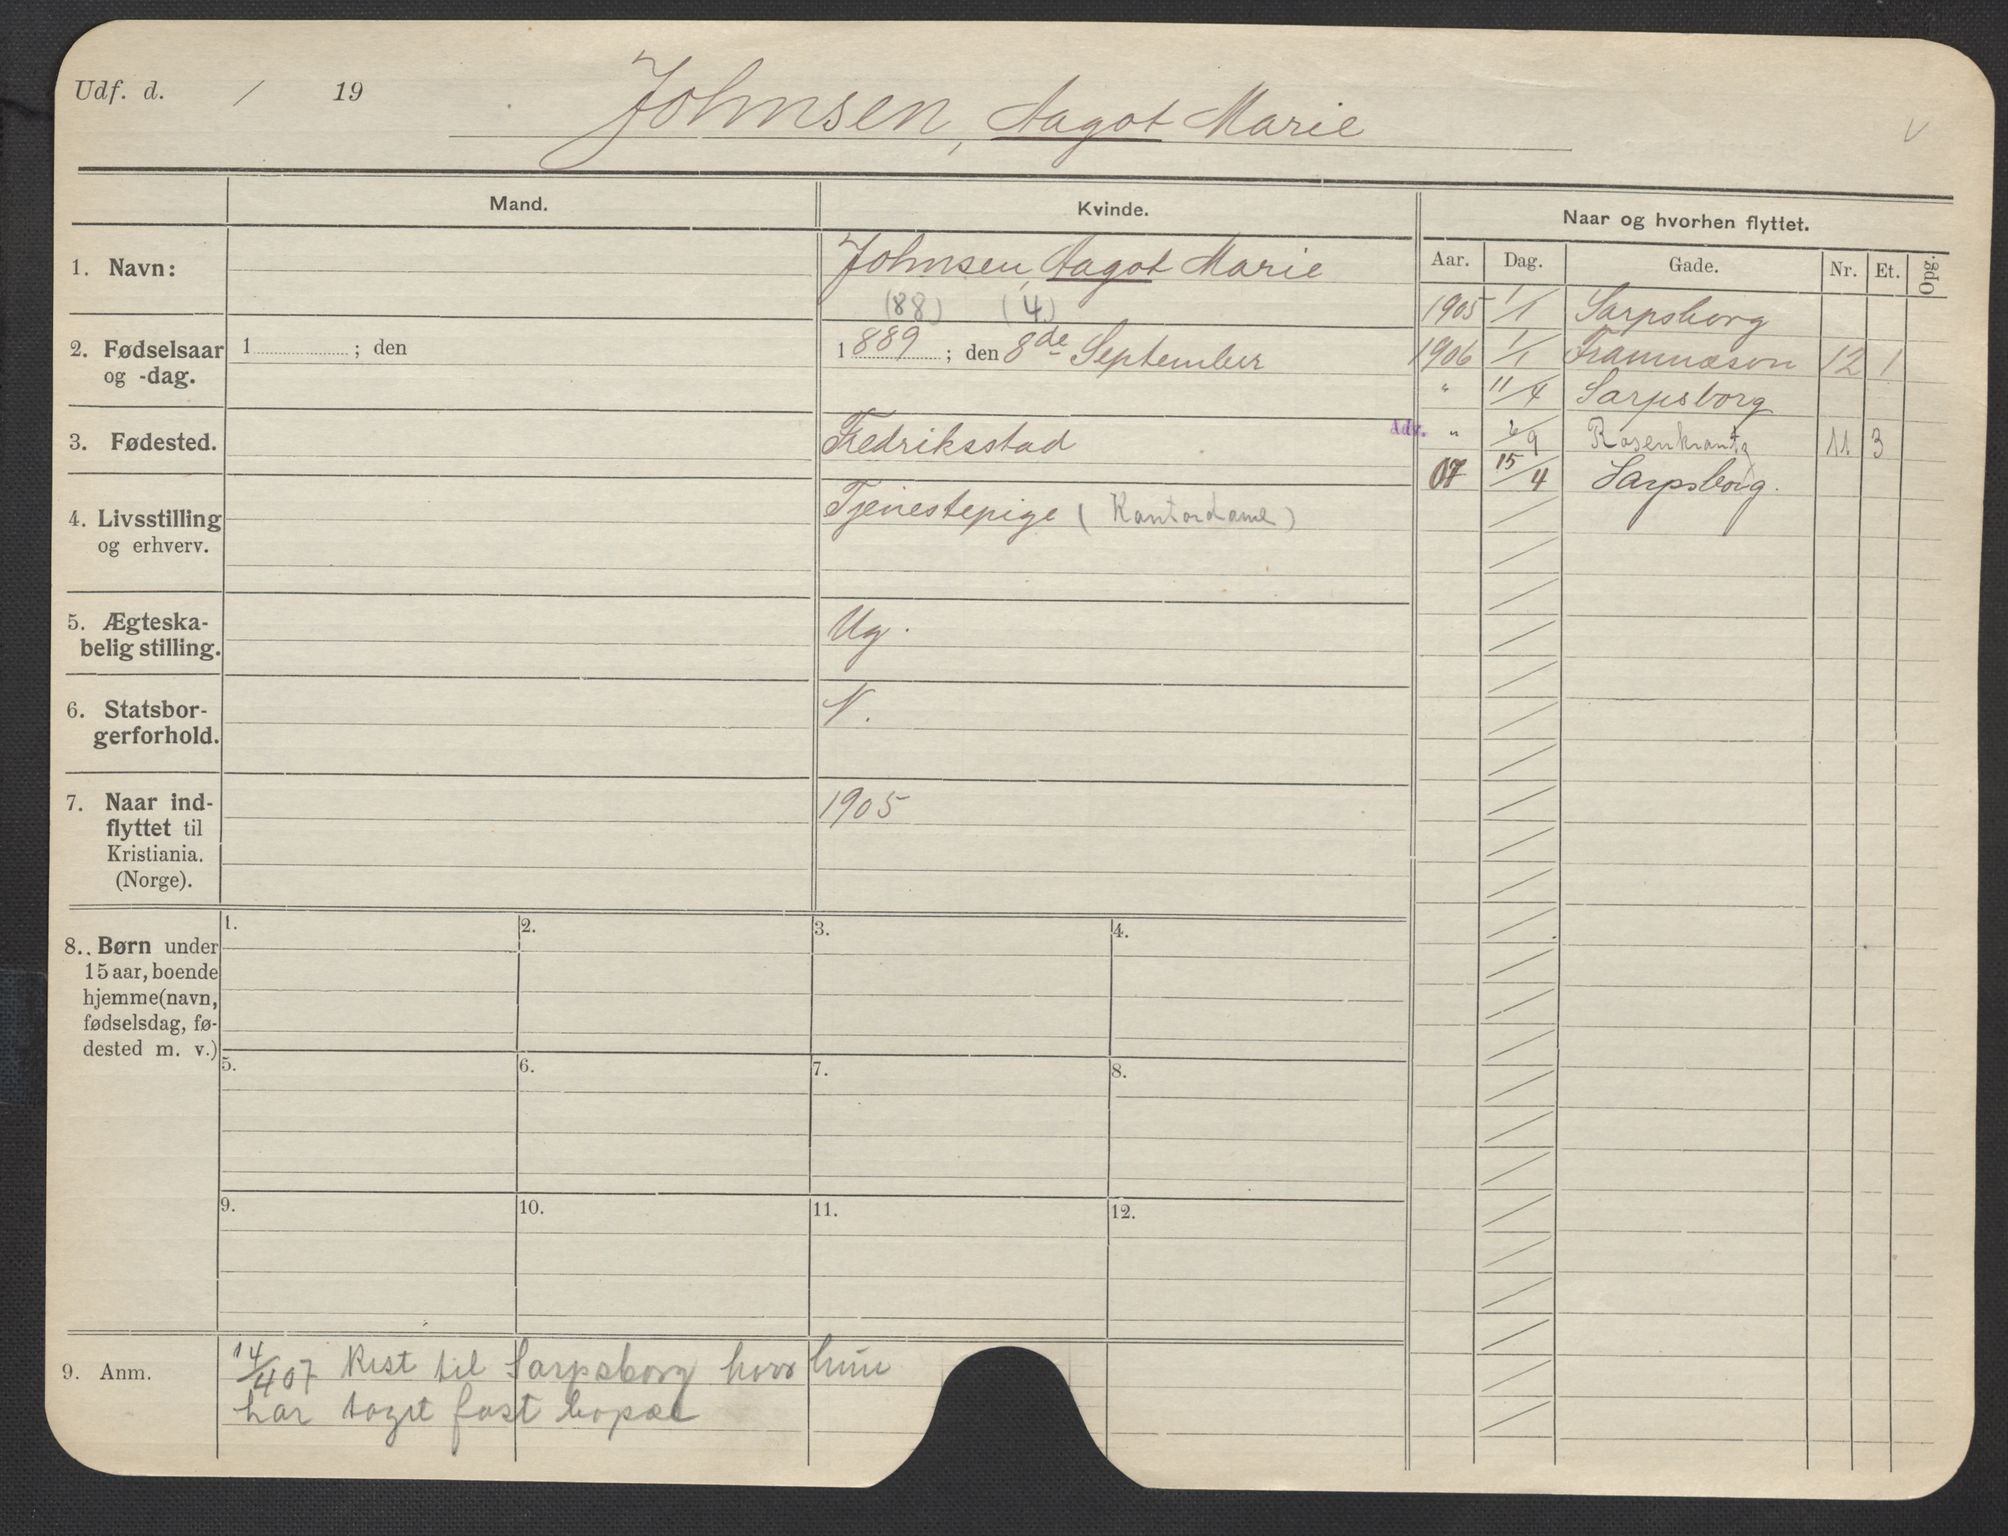 Udf. d. / 19
Johnsen, Aagot Marie
v
Mand.
Kvinde.
Naar og hvorhen flyttet.
Aar. Dag. Gade. Nr. Et. Opg.
1. Navn:
Johnsen, Aagot Marie
(88) (4)
2. Fødselsaar
og -dag.
1 ; den
1889 ; den 8de September
3. Fødested.
Fredriksstad
4. Livsstilling
og erhverv.
Tjenestepige (Kontordame)
5. Ægteska-
belig stilling.
Ug.
6. Statsbor-
gerforhold.
N.
7. Naar ind-
flyttet til
Kristiania.
(Norge).
1905
1905 1/1 Sarpsborg
1906 1/1 Framnæsvn 12 1
" 11/4 Sarpsborg
Adr. " 6/9 Rosenkrantzg 11 3
07 15/4 Sarpsborg.
8. Børn under
15 aar, boende
hjemme (navn,
fødselsdag, fø-
dested m. v.)
1. 2. 3. 4.
5. 6. 7. 8.
9. 10. 11. 12.
9. Anm.
14/4 07 Reist til Sarpsborg hvor hun
har taget fast bopæl